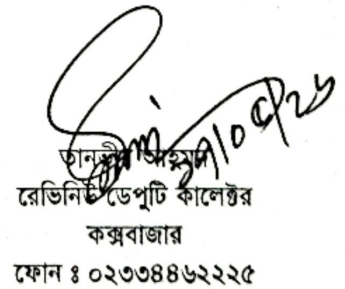 তানভীর আহমদ
রেভিনিউ ডেপুটি কালেক্টর
কক্সবাজার
ফোন ঃ ০২৩৩৪৪৬২২২৫